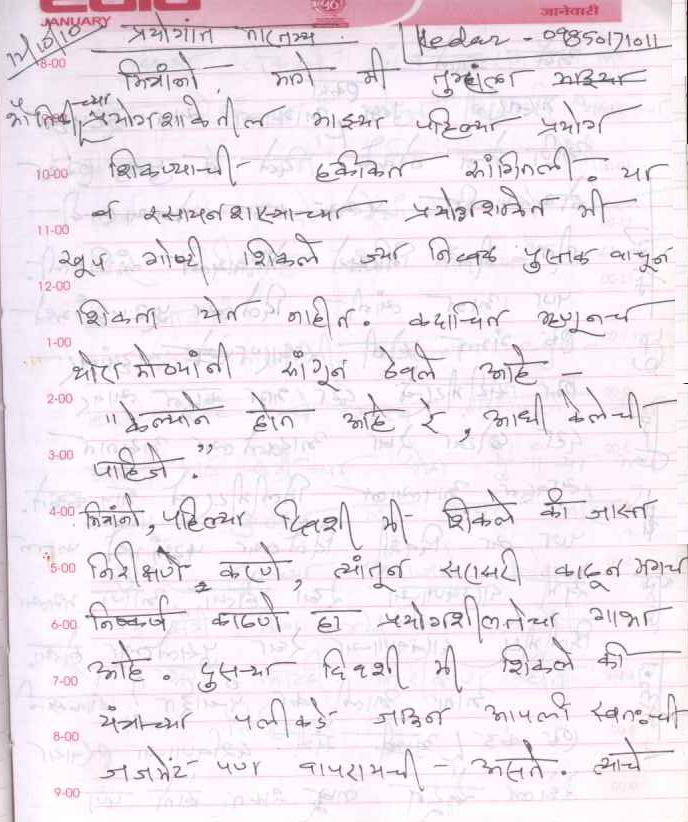 JANUARY जानेवारी
12/10/10 प्रयोगांत तारतम्य Kedar - 09850171011
8-00 मित्रांनो, मागे मी तुम्हांला माझ्या
भौतिकीच्या प्रयोगशाळेतील माझ्या पहिल्या प्रयोग
10-00 शिकण्याची हकीकत सांगितली. या
व रसायनशास्त्राच्या प्रयोगशाळेत मी
11-00
खूप गोष्टी शिकले ज्या निव्वळ पुस्तक वाचून
12-00
शिकता येत नाहीत. कदाचित म्हणूनच
1-00
थोरा मोठ्यांनी सांगून ठेवले आहे -
2-00
"केल्याने होत आहे रे, आधी केलेची
3-00
पाहिजे."
4-00 मित्रांनो, पहिल्या दिवशी मी शिकले की जास्त
5-00 निरीक्षणे करणे, त्यांतून सरासरी काढून मगच
6-00 निष्कर्ष काढणे हा प्रयोगशीलतेचा गाभा
7-00 आहे. दुसऱ्या दिवशी मी शिकले की
यंत्राच्या पलीकडे जाऊन आपली स्वतःची
8-00
जजमेंट पण वापरायची असते. त्याचे
9-00